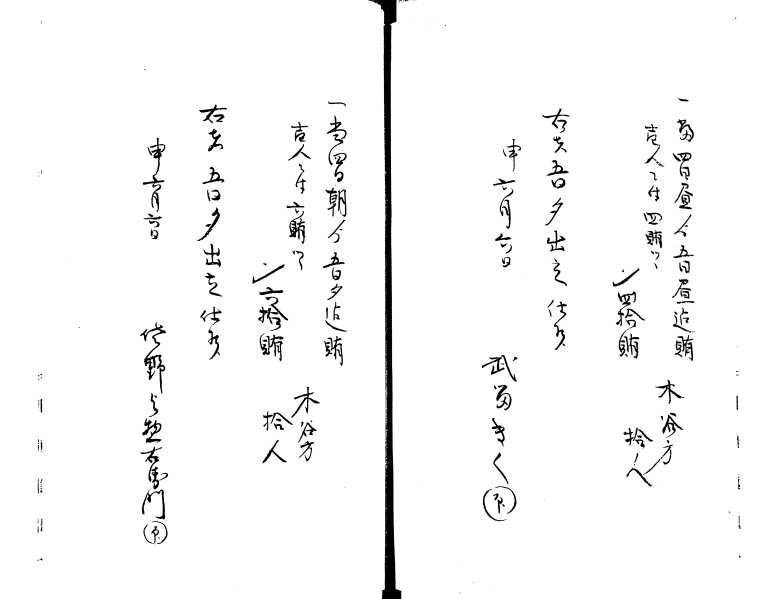 一当四日昼ゟ五日昼迄賄
壱人ニ付四賄ツヽ
〆四拾賄
木谷方
拾人
右者五日夕出立仕候
申六月六日
武富きく㊞
一当四日朝ゟ五日夕迄賄
壱人ニ付六賄ツヽ
〆六拾賄
木谷方
拾人
右者五日夕出立仕候
申六月六日
野与惣右衛門㊞